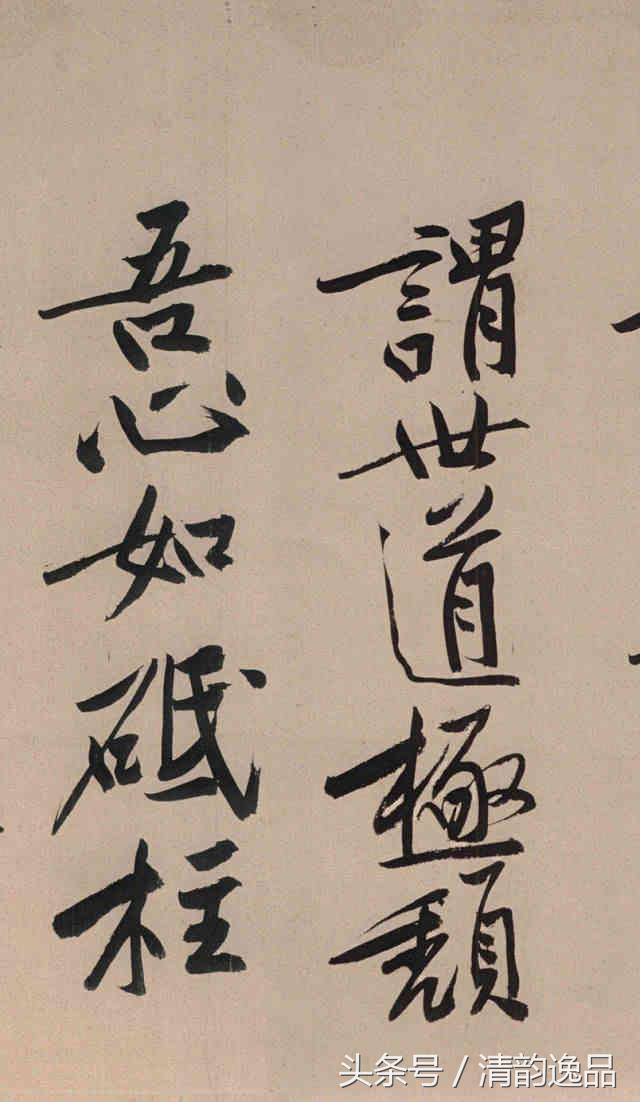 謂世道極頽
吾心如砥柱
头条号 / 清韵逸品